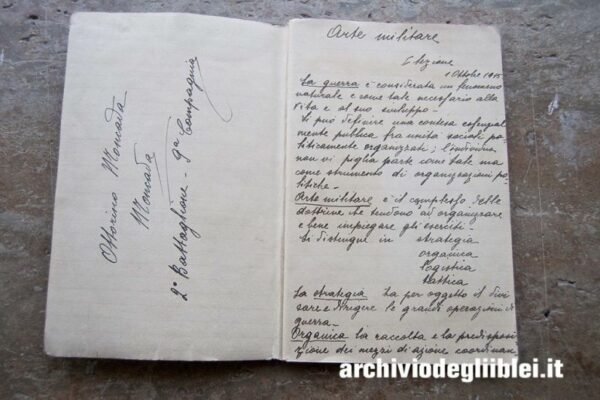 Ottorino Moncada
Moncada
2° Battaglione - 9ª Compagnia
Arte militare
I lezione
1 Ottobre 1915
La guerra è considerata un fenomeno
naturale e come tale necessario alla
vita e al suo sviluppo -
Si può definire una contesa essenzial
mente pubblica fra unità sociali po-
liticamente organizzate; l'individuo
non vi piglia parte come tale ma
come strumento di organizzazioni po-
litiche -
Arte militare è il complesso delle
dottrine che tendono ad organizzare
e bene impiegare gli eserciti -
Si distingue in strategia
organica
logistica
tattica
La strategia ha per oggetto il divi
sare e dirigere le grandi operazioni di
guerra -
Organica la raccolta e la predisposi
zione dei mezzi di azione coordinan
archiviodegliiblei.it